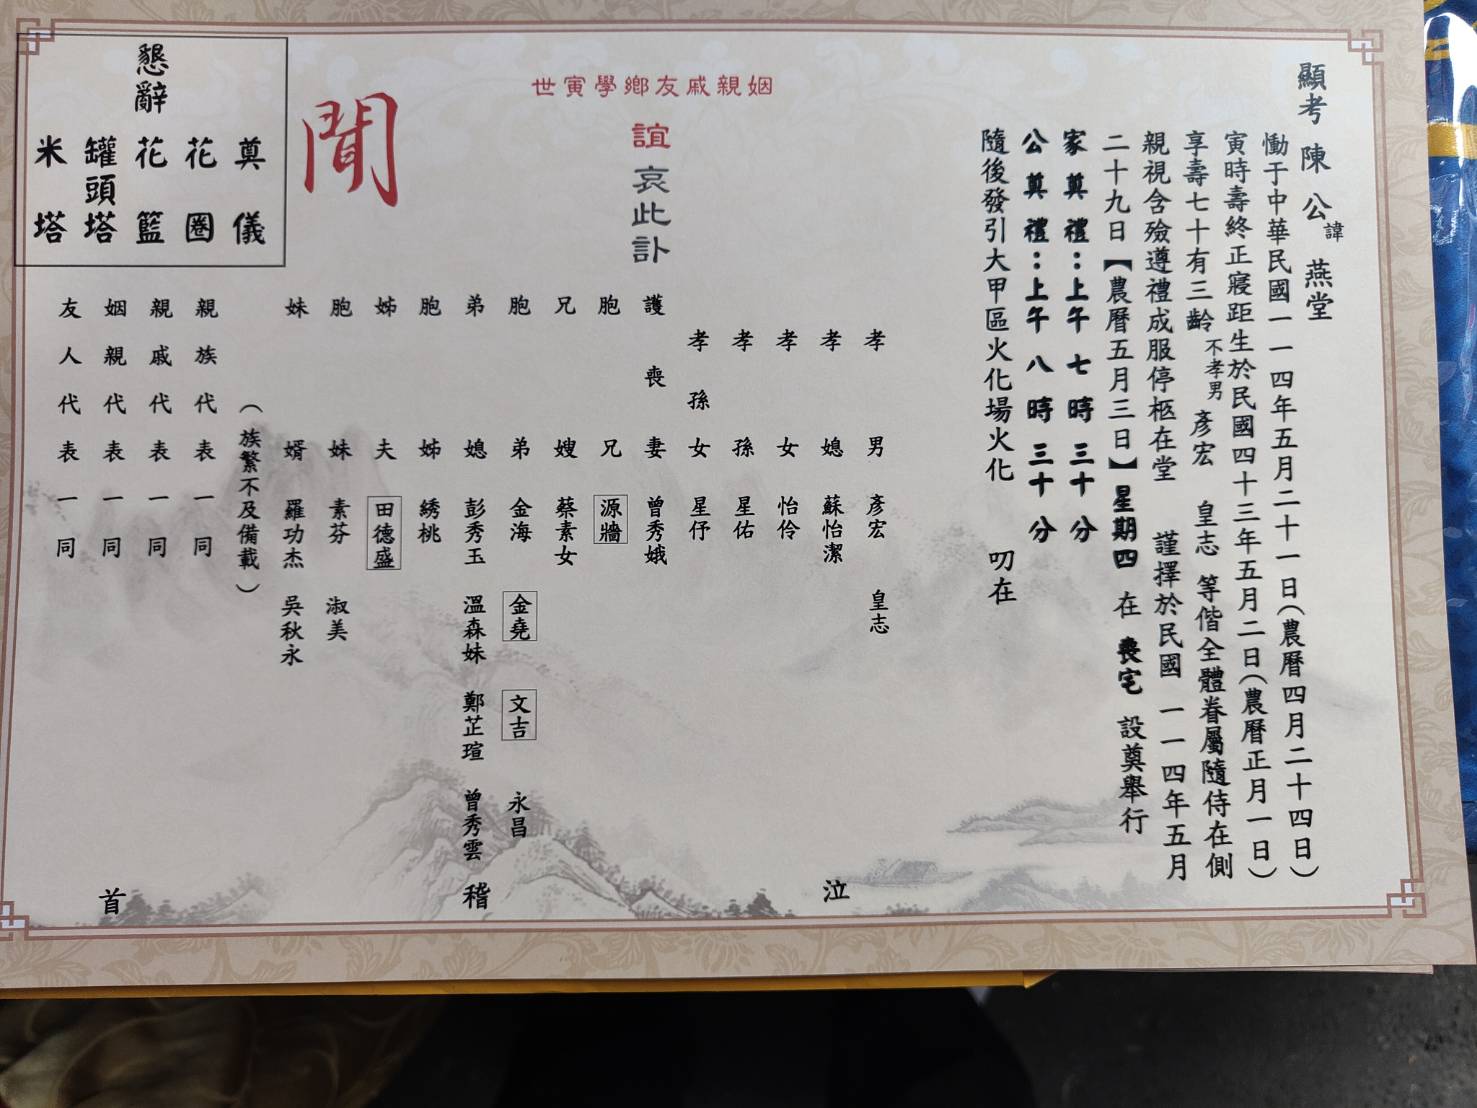 顯考 陳公諱燕堂
慟于中華民國一一四年五月二十一日(農曆四月二十四日)
寅時壽終正寢距生於民國四十三年五月二日(農曆正月一日)
享壽七十有三齡 不孝男 彥宏 皇志 等偕全體眷屬隨侍在側
親視含殮遵禮成服停柩在堂 謹擇於民國 一一四年五月
二十九日【農曆五月三日】星期四 在 喪宅 設奠舉行
家奠禮:上午 七時三十分
公奠禮:上午 八時三十分
隨後發引大甲區火化場火化 叨在
世寅學鄉友戚親姻
誼 哀此訃
聞
孝男 彥宏 皇志
孝媳 蘇怡潔
孝女 怡伶
孝孫 星佑
孝孫女 星伃
護喪妻 曾秀娥
胞兄 源牆
兄嫂 蔡素女
胞弟 金海 金堯 文吉 永昌
弟媳 彭秀玉 溫森妹 鄭芷瑄 曾秀雲
胞姊 綉桃
姊夫 田德盛
胞妹 素芬 淑美
妹婿 羅功杰 吳秋永
(族繁不及備載)
親族代表一同
親戚代表一同
姻親代表一同
友人代表一同
泣
稽
首
懇辭
奠儀
花圈
花籃
罐頭塔
米塔